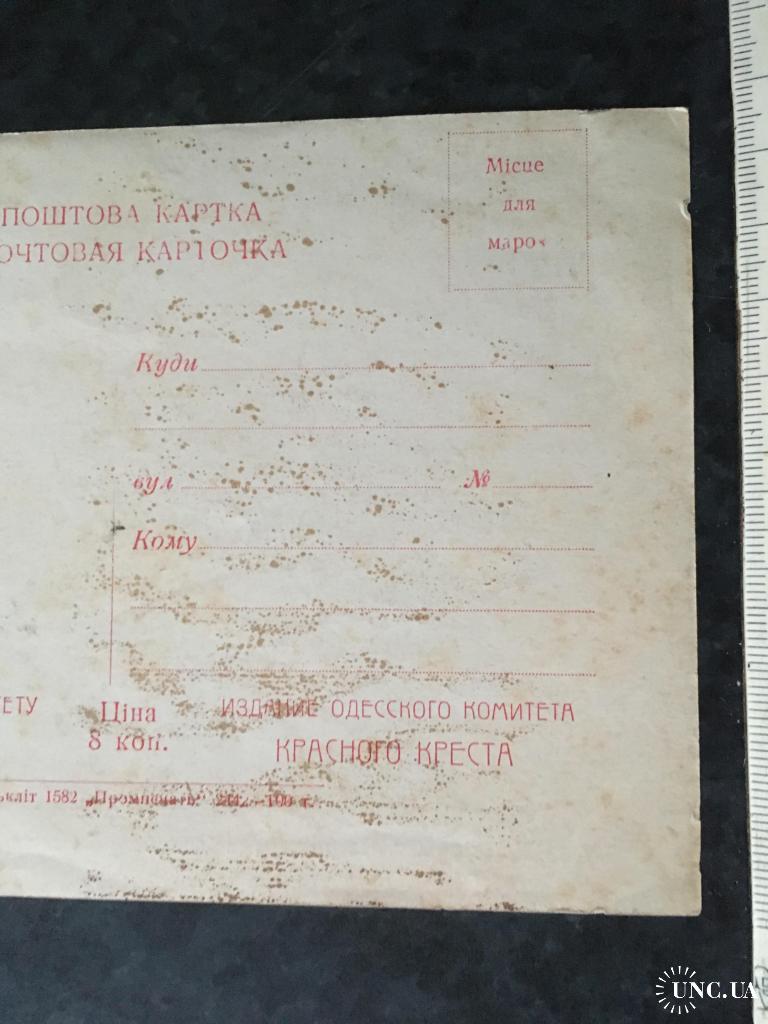 Місце
для
марок
ПОШТОВА КАРТКА
ОЧТОВАЯ КАРТОЧКА
Куди
вул № 
Кому
ЕТУ
Ціна
8 коп.
ИЗДАНИЕ ОДЕССКОГО КОМИТЕТА
КРАСНОГО КРЕСТА
ькліт 1582 „Промпечать"
UNC.UA